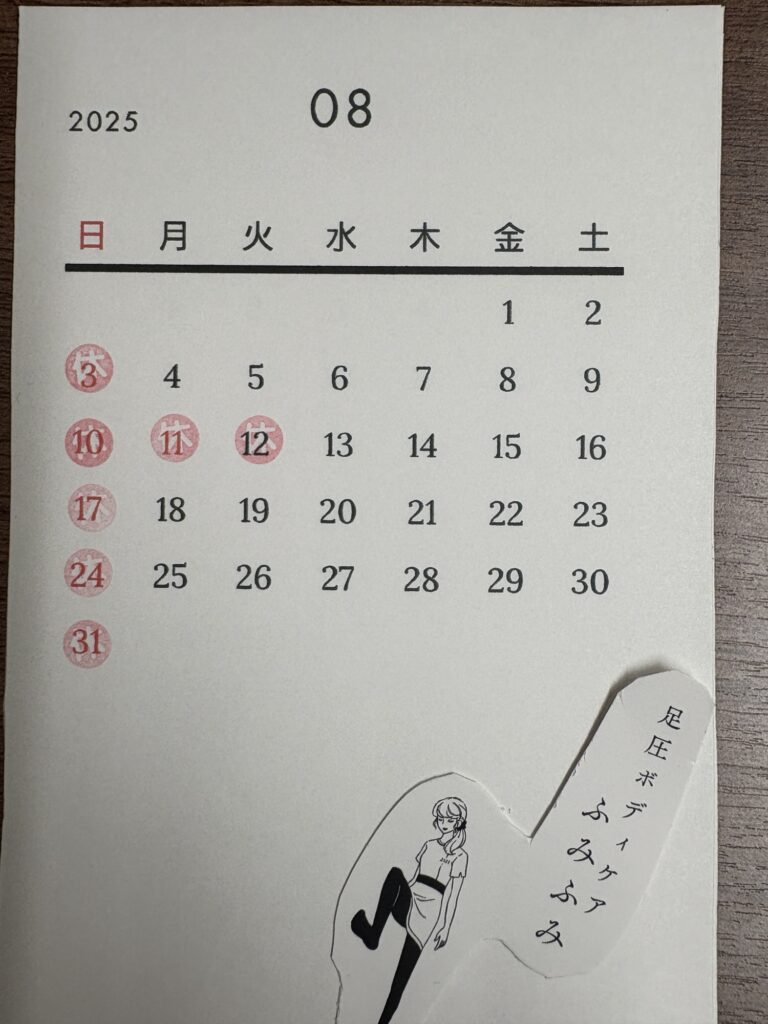 2025 08
日 月 火 水 木 金 土
1 2
休 3 4 5 6 7 8 9
休 10 休 11 休 12 13 14 15 16
休 17 18 19 20 21 22 23
休 24 25 26 27 28 29 30
休 31
足圧ボディケア
ふみふみ